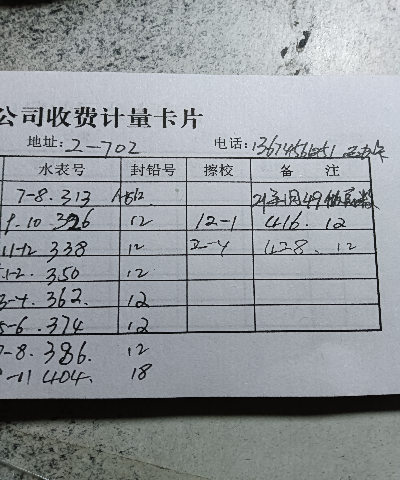 公司收费计量卡片
地址: 2-702 电话:
水表号 封铅号 擦校 备注
7-8. 313
9-10 326 12 12-1 416. 12
11-12 338 12 2-4 428. 12
1-2. 350 12
3-4. 362. 12
5-6. 374 12
7-8. 386. 12
-11 404. 18